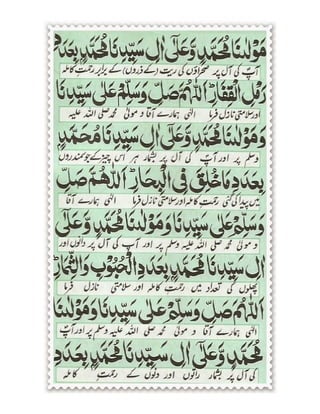 مَوْلٰنَا مُحَمَّدٍ وَّعَلٰٓى اٰلِ سَيِّدِنَا مُحَمَّدٍ بِعَدَدِ
آپ کی آل پر صحراؤں کی ریت (کے ذروں) کے برابر رحمتِ کاملہ
رَمْلِ الْقِفَارِ اَللّٰهُمَّ صَلِّ وَسَلِّمْ عَلٰى سَيِّدِنَا
اور سلامتی نازل فرما الٰہی ہمارے آقا و مولیٰ محمد صلی اللہ علیہ
وَمَوْلٰنَا مُحَمَّدٍ وَّعَلٰٓى اٰلِ سَيِّدِنَا مُحَمَّدٍ
وسلم پر اور آپ کی آل پر بشمار ہر اس چیز کے جو سمندروں
بِعَدَدِ مَا خُلِقَ فِى الْبِحَارِ اَللّٰهُمَّ صَلِّ
میں پیدا کی گئی رحمتِ کاملہ اور سلامتی نازل فرما الٰہی ہمارے آقا
وَسَلِّمْ عَلٰى سَيِّدِنَا وَمَوْلٰنَا مُحَمَّدٍ وَّعَلٰٓى
و مولیٰ محمد صلی اللہ علیہ وسلم پر اور آپ کی آل پر دانوں اور
اٰلِ سَيِّدِنَا مُحَمَّدٍ بِعَدَدِ الْحُبُوْبِ وَالثِّمَارِ
پھلوں کی تعداد میں رحمتِ کاملہ اور سلامتی نازل فرما
اَللّٰهُمَّ صَلِّ وَسَلِّمْ عَلٰى سَيِّدِنَا وَمَوْلٰنَا
الٰہی ہمارے آقا و مولیٰ محمد صلی اللہ علیہ وسلم پر اور آپ
مُحَمَّدٍ وَّعَلٰٓى اٰلِ سَيِّدِنَا مُحَمَّدٍ بِعَدَدِ
کی آل پر بشمار راتوں اور دنوں کے رحمتِ کاملہ